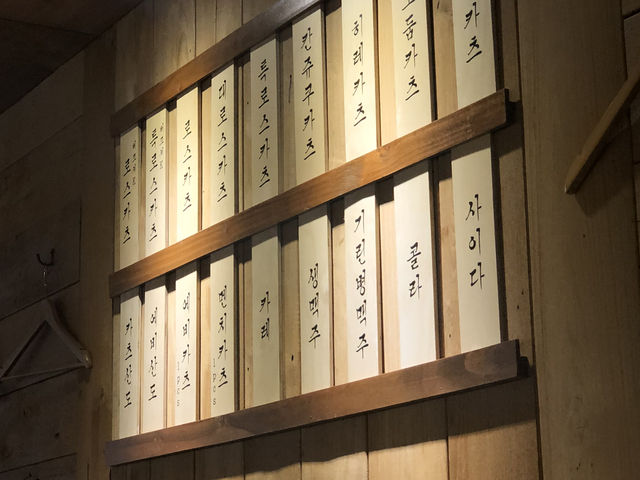 로스카츠
특로스카츠
로스카츠
대로스카츠
특로스카츠
칸쥬쿠카츠
히레카츠
둠카츠
카츠
카츠산도
에비산도
에비카츠 1pcs
멘치카츠 1pcs
카레
생맥주
기린병맥주
콜라
사이다